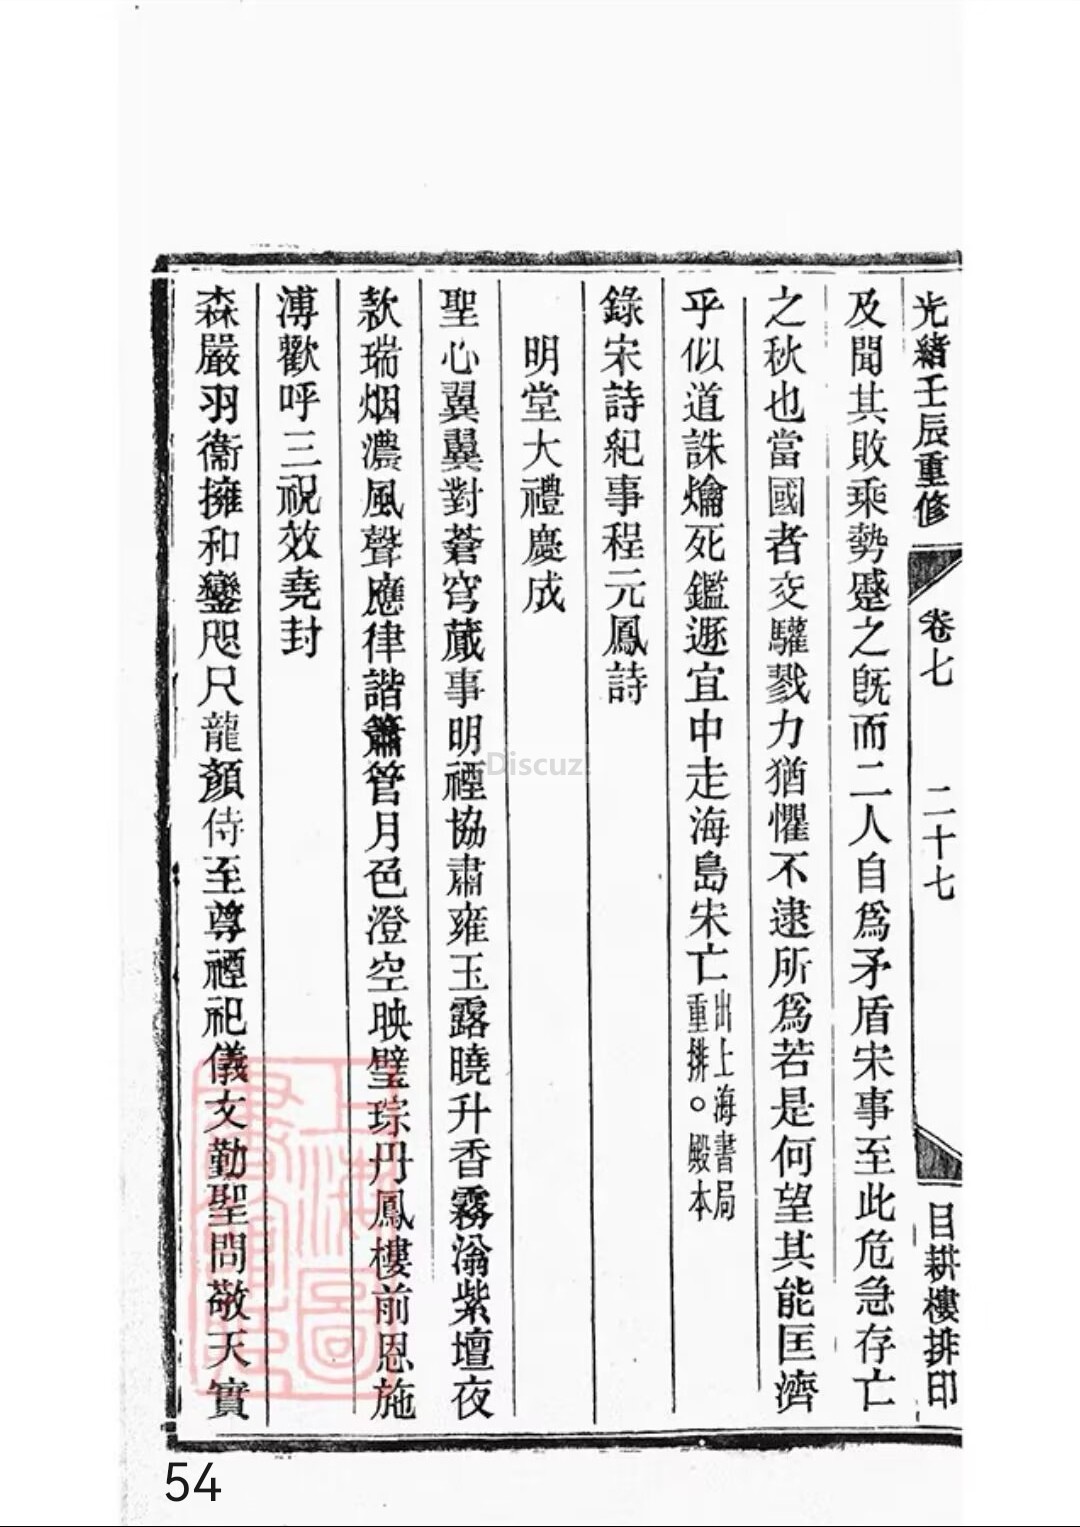 光緒壬辰重修 卷七 二十七 目耕樓排印
及聞其敗乘勢蹙之旣而二人自爲矛盾宋事至此危急存亡
之秋也當國者交驩戮力猶懼不逮所爲若是何望其能匡濟
乎似道誅爚死鑑遯宜中走海島宋亡出上海書局重排。殿本
錄宋詩紀事程元鳳詩
明堂大禮慶成
聖心翼翼對蒼穹蕆事明禋協肅雍玉露曉升香霧滃紫壇夜
款瑞烟濃風聲應律諧簫管月色澄空映璧琮丹鳳樓前恩施
溥歡呼三祝效堯封
森嚴羽衞擁和鑾咫尺龍顏侍至尊禋祀儀文勤聖問敬天實
上海圖書館藏
Discuz!
54